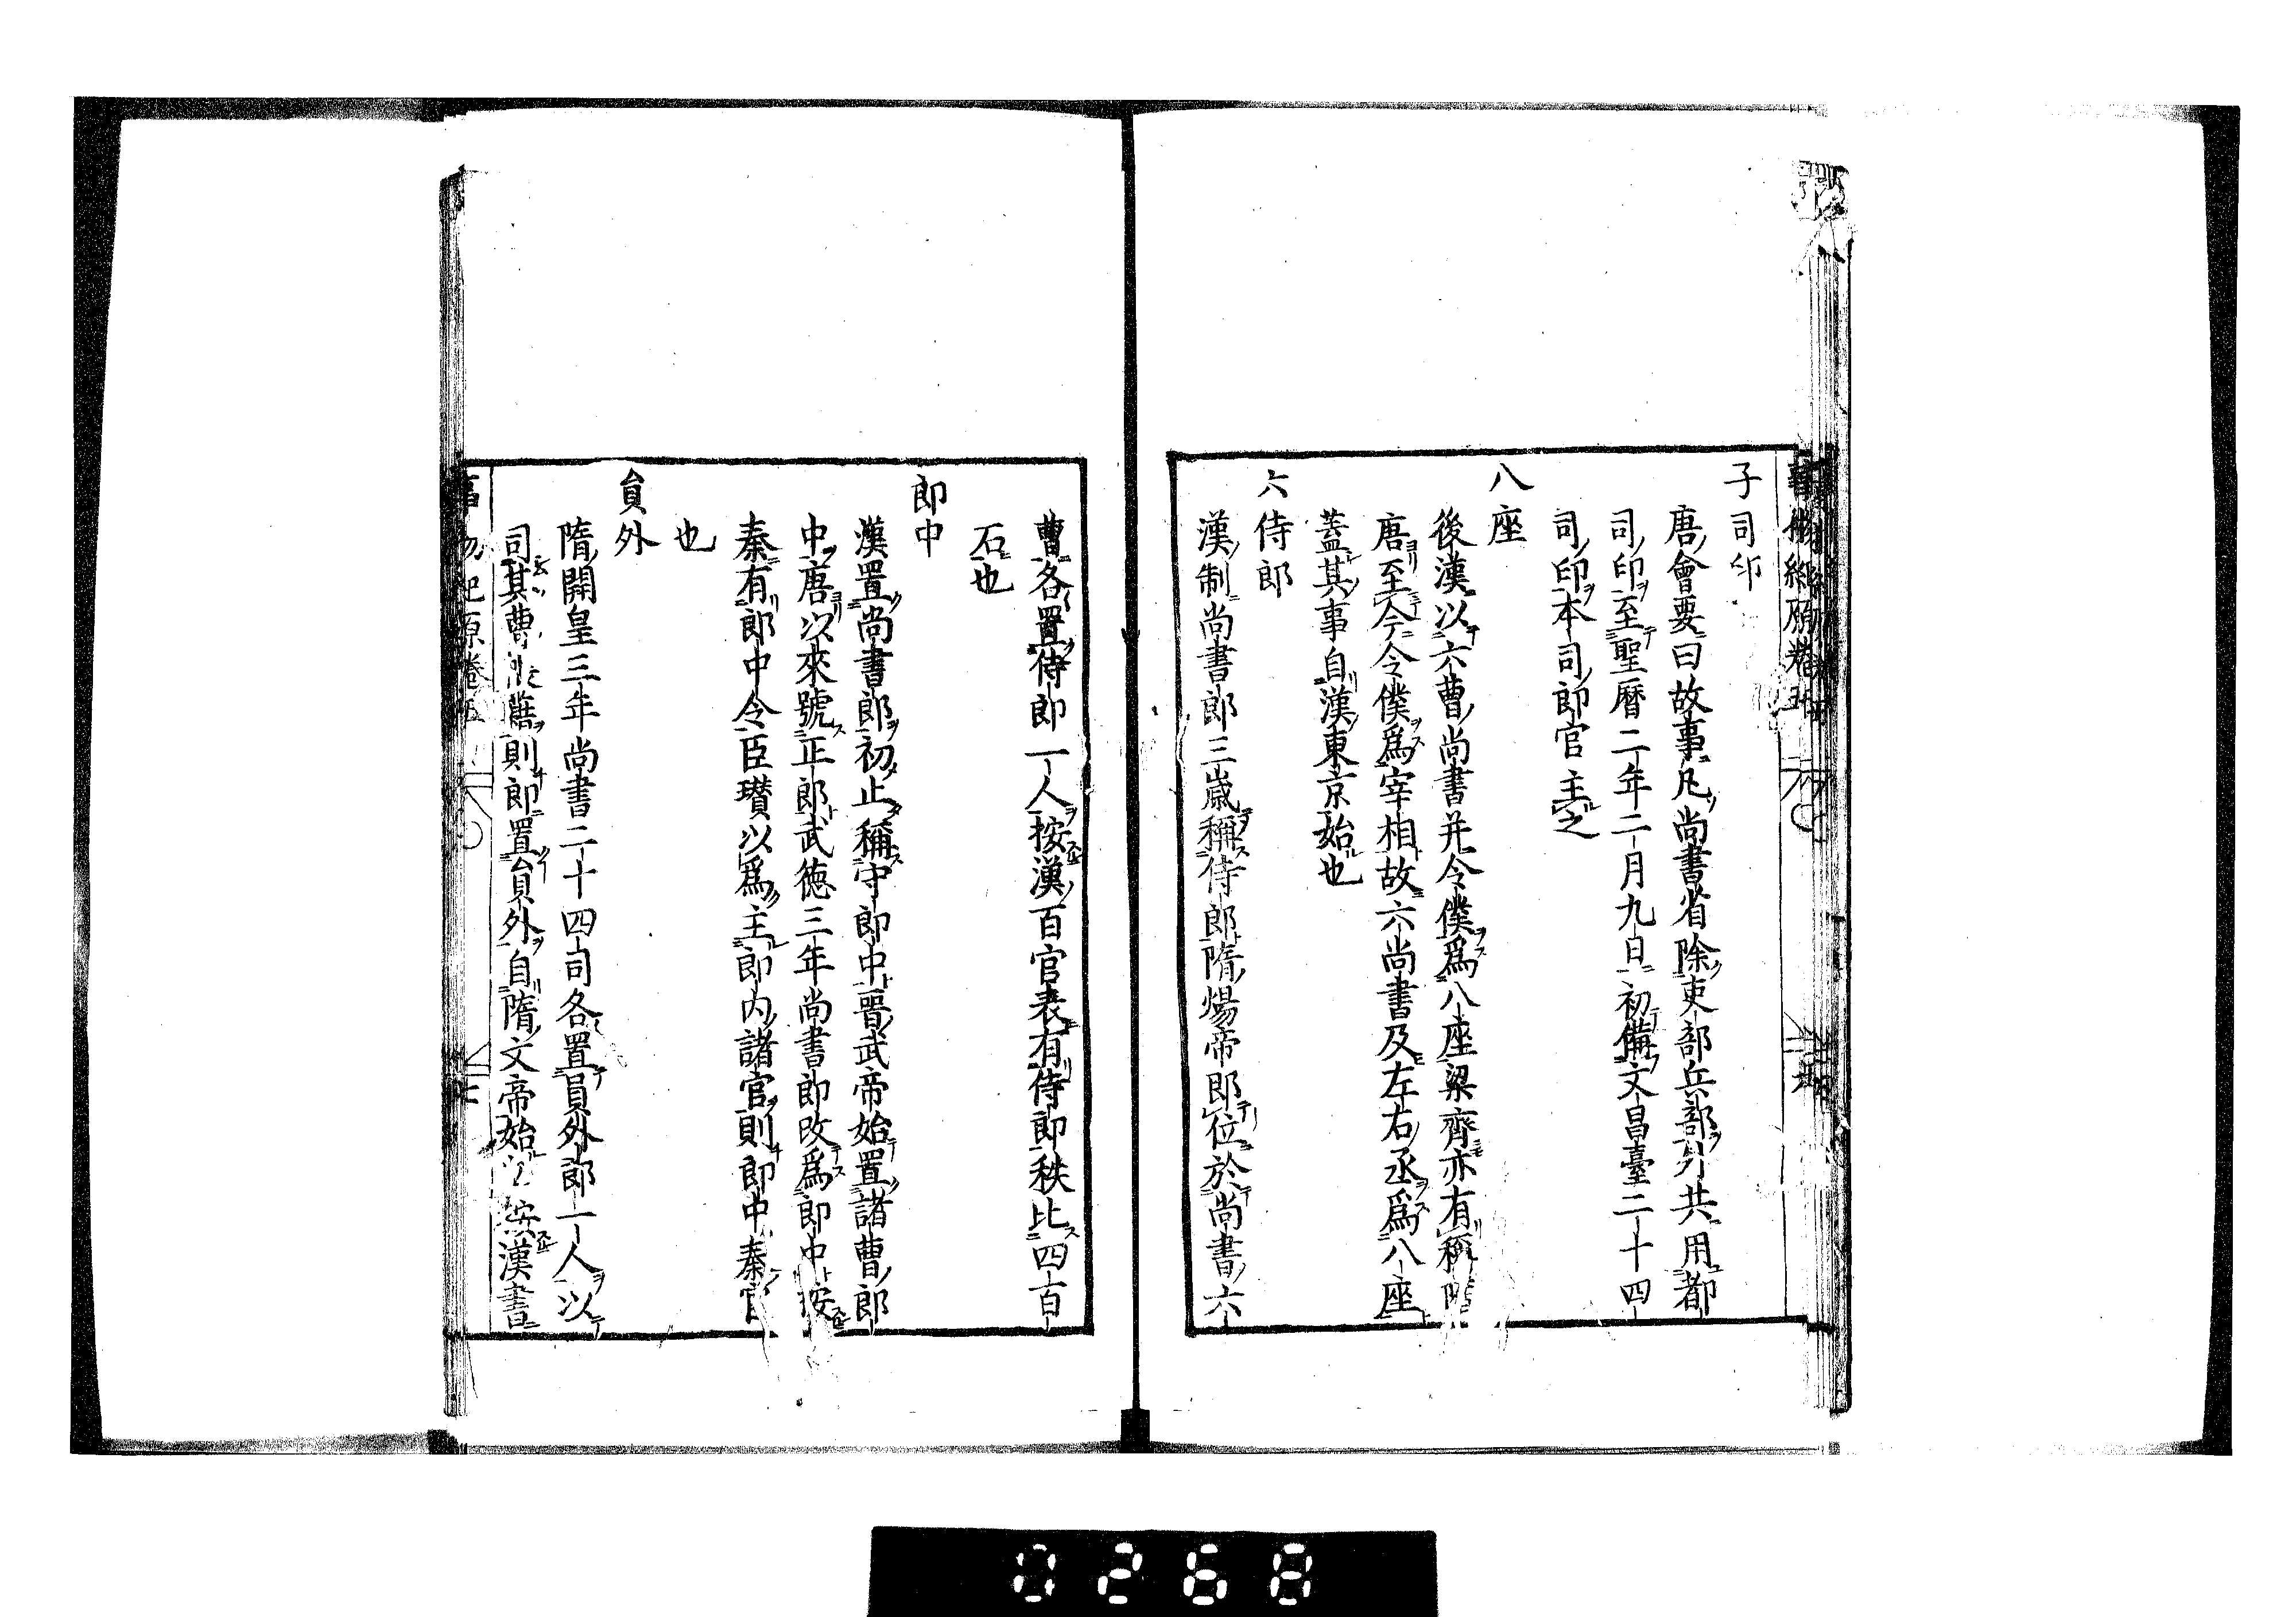 子司印
唐會要曰故事凡尚書省除吏部兵部外共用都
司印至聖曆二年二月九日初備文昌臺二十四
司印本司郎官主之
八座
後漢以六曹尚書并令僕爲八座梁齊亦有稱隋
唐至今令僕爲宰相故六尚書及左右丞爲八座
蓋其事自漢東京始也
六侍郎
漢制尚書郎三歲稱侍郎隋煬帝郎位於尚書六
曹各置侍郎一人按漢百官表有侍郎秩比四百
石也
郎中
漢置尚書郎初止稱守郎中晋武帝始置諸曹郎
中唐以來號正郎武德三年尚書郎改爲郎中按
秦有郎中令臣瓚以爲主郎内諸官則郎中秦官
也
員外
隋開皇三年尚書二十四司各置員外郎一人以
司其曹 籍則郎置員外自隋文帝始也按漢書
事物紀原卷五